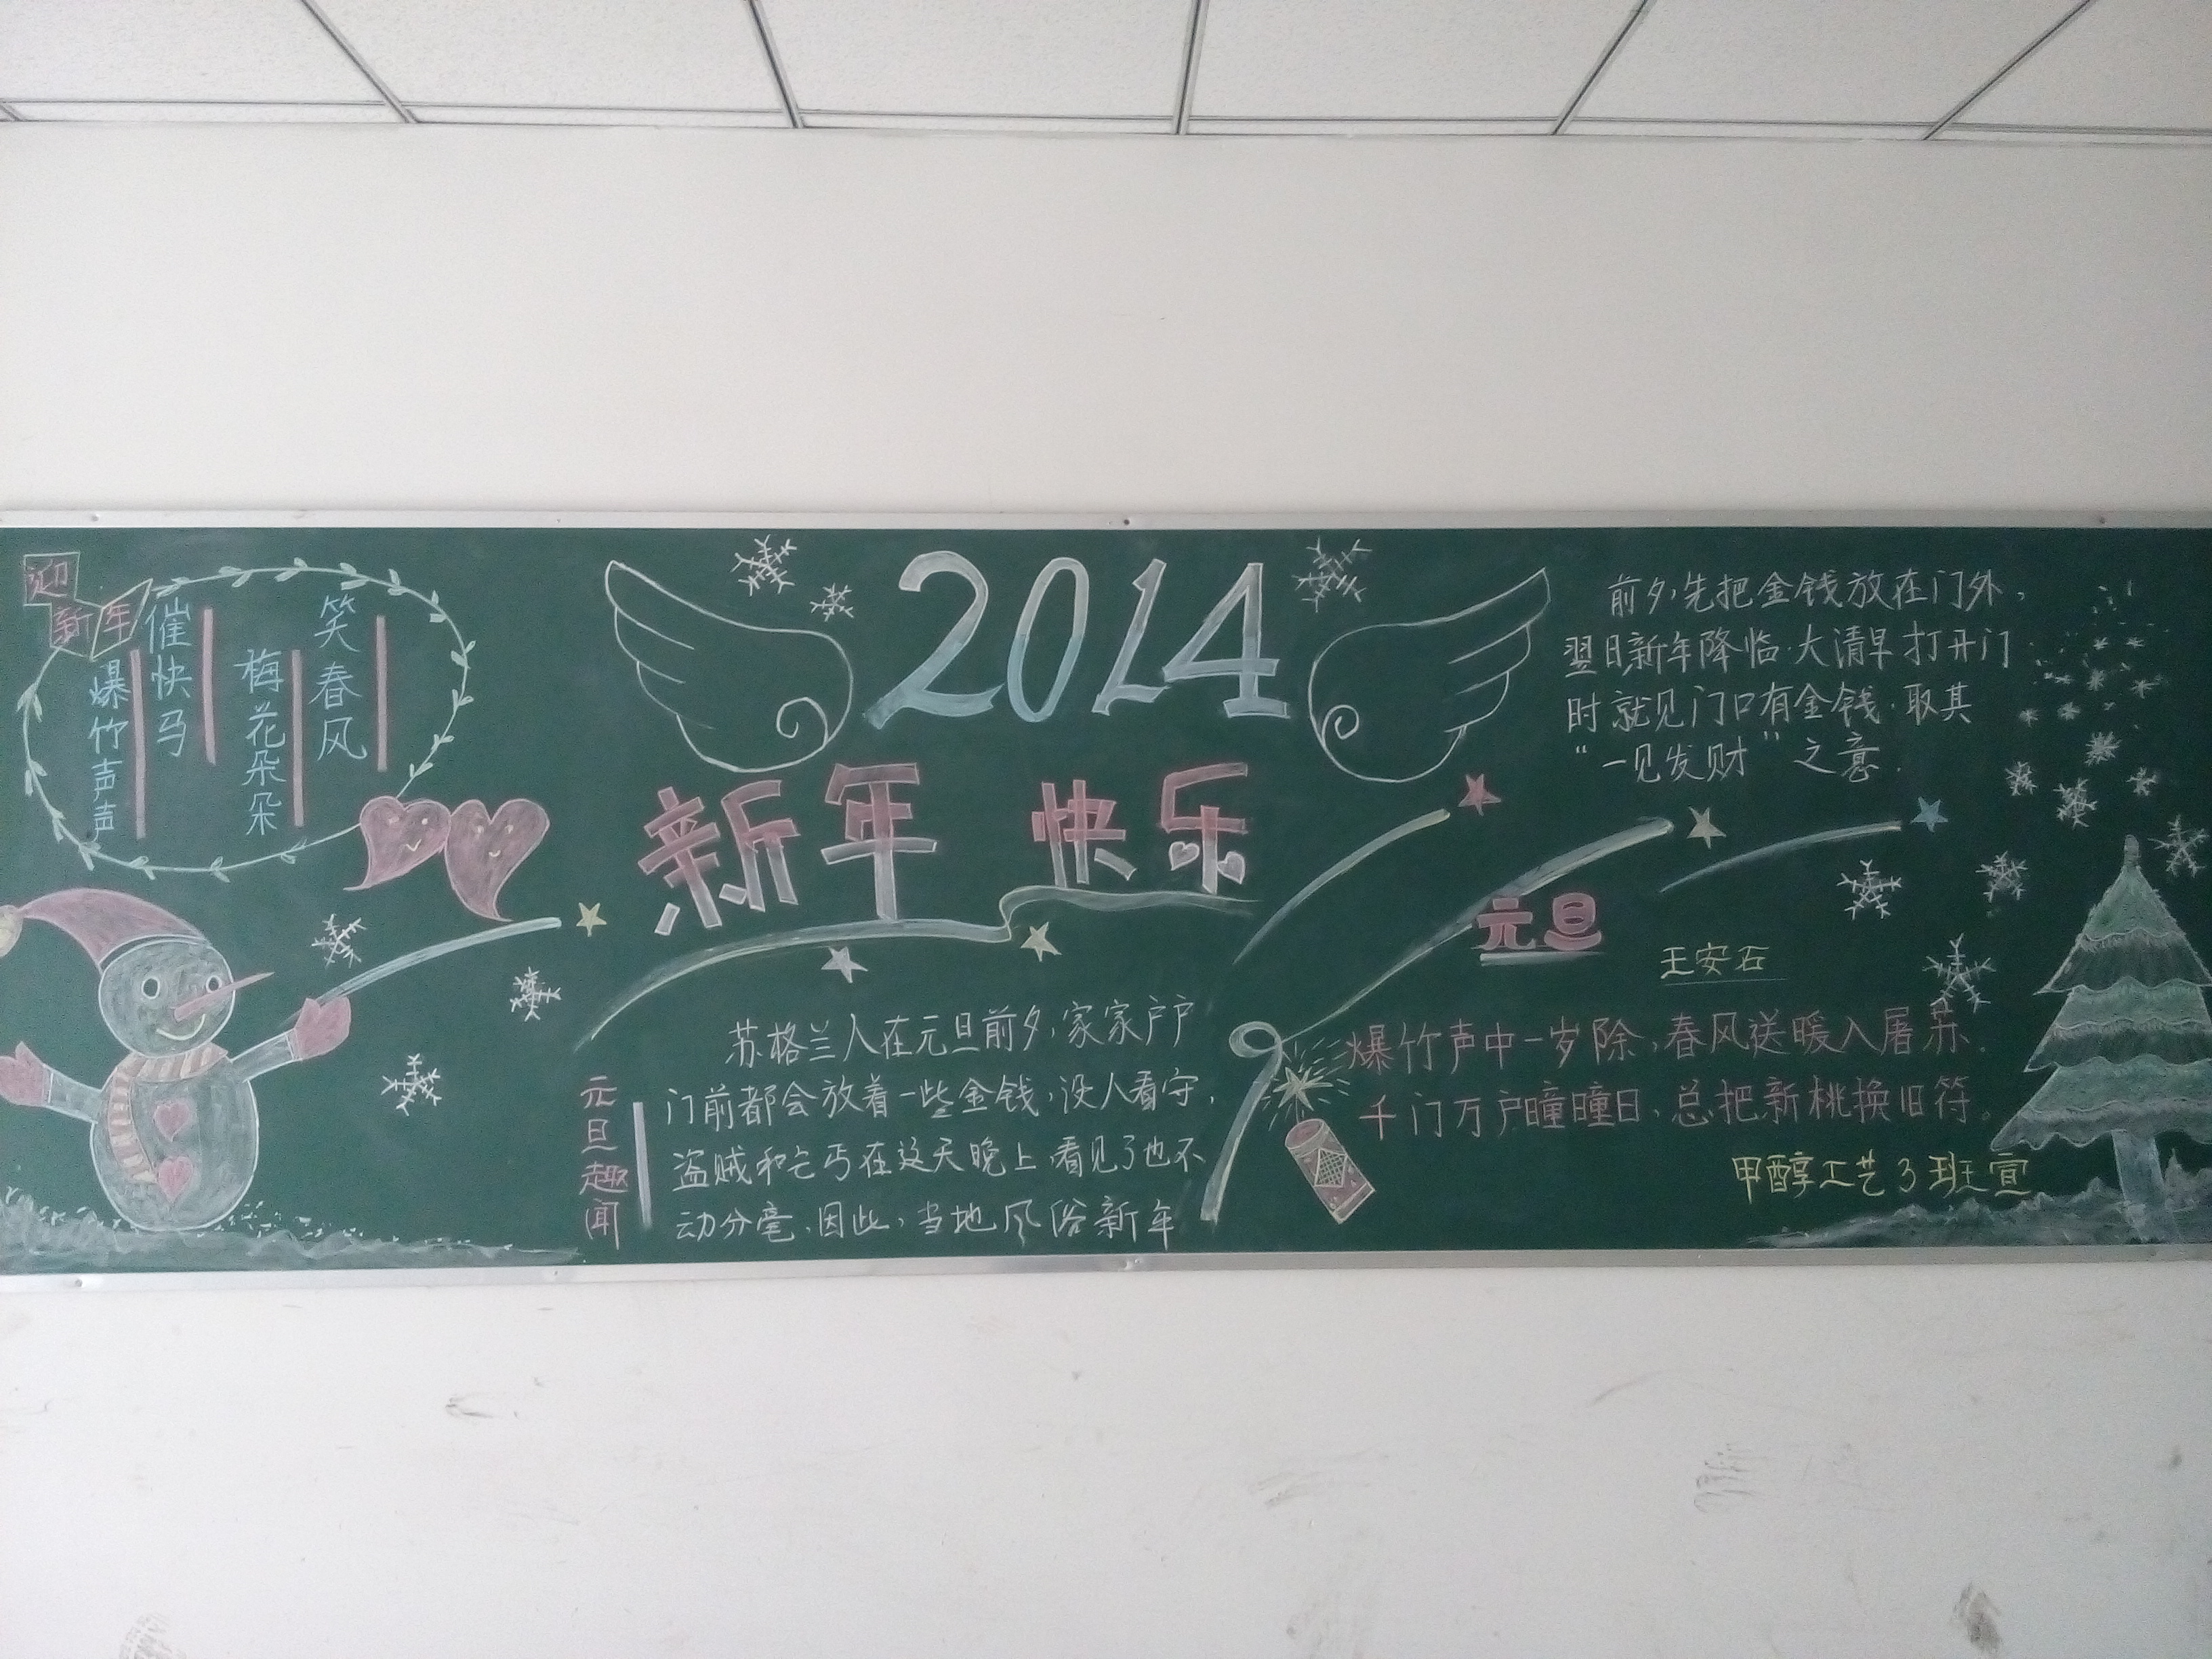 迎新年
爆竹声声
催快马
梅花朵朵
笑春风
2014
新年 快乐
元旦趣闻
苏格兰人在元旦前夕，家家户户
门前都会放着一些金钱，没人看守，
盗贼和乞丐在这天晚上看见了也不
动分毫，因此，当地风俗新年
前夕，先把金钱放在门外，
翌日新年降临，大清早打开门
时就见门口有金钱，取其
“一见发财”之意．
元旦
王安石
爆竹声中一岁除，春风送暖入屠苏．
千门万户瞳瞳日，总把新桃换旧符。
甲醇工艺3班宣